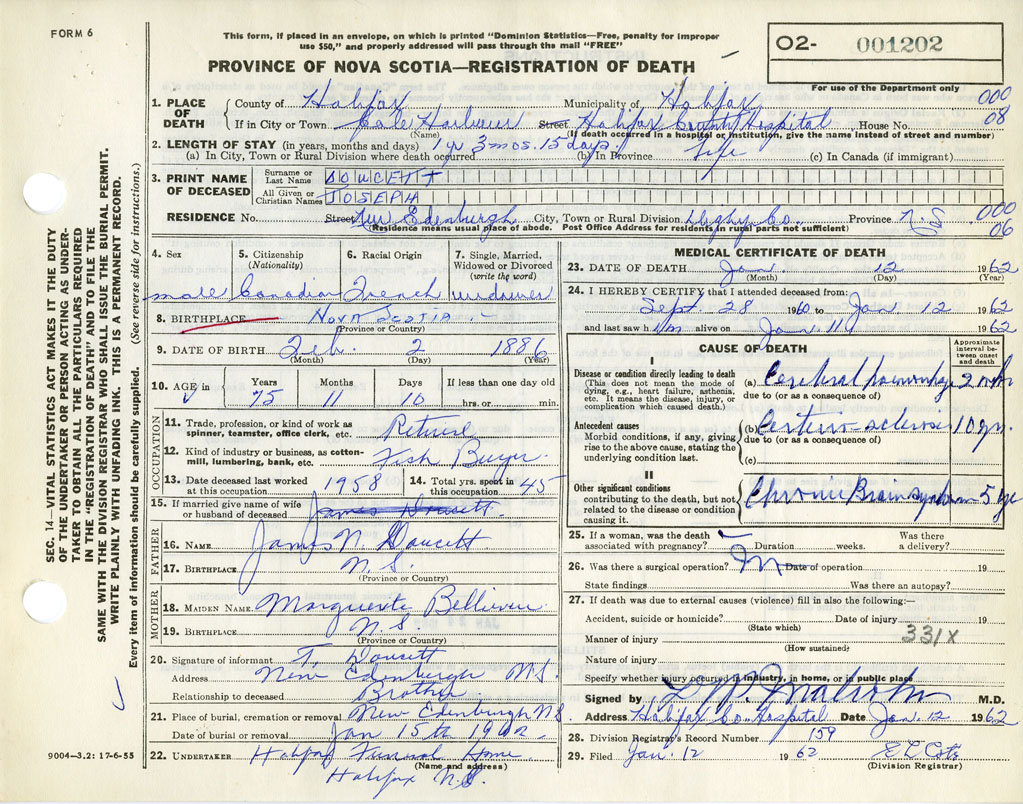 FORM 6
This form, if placed in an envelope, on which is printed "Dominion Statistics—Free, penalty for improper
use $50," and properly addressed will pass through the mail "FREE"
PROVINCE OF NOVA SCOTIA—REGISTRATION OF DEATH
02- 001202
For use of the Department only
000
08
1. PLACE OF DEATH
County of Halifax Municipality of Halifax
If in City or Town Cole Harbour Street Halifax County Hospital House No.
(Name) (If death occurred in a hospital or institution, give the name instead of street and number)
2. LENGTH OF STAY (in years, months and days) 1 yr 3 mos. 15 days Life
(a) In City, Town or Rural Division where death occurred (b) In Province (c) In Canada (if immigrant)
3. PRINT NAME OF DECEASED
Surname or Last Name DOUCETT
All Given or Christian Names JOSEPH
RESIDENCE No. Street New Edenburgh City, Town or Rural Division Digby Co. Province N.S
000
06
(Residence means usual place of abode. Post Office Address for residents in rural parts not sufficient)
4. Sex 5. Citizenship (Nationality) 6. Racial Origin 7. Single, Married, Widowed or Divorced (write the word)
male Canadian French widower
8. BIRTHPLACE NOVA SCOTIA
(Province or Country)
9. DATE OF BIRTH Feb. 2 1886
(Month) (Day) (Year)
10. AGE in Years Months Days If less than one day old
75 11 10 hrs. or min.
OCCUPATION
11. Trade, profession, or kind of work as
spinner, teamster, office clerk, etc. Retired
12. Kind of industry or business, as cotton-
mill, lumbering, bank, etc. Fish Buyer
13. Date deceased last worked at this occupation 1958 14. Total yrs. spent in this occupation 45
15. If married give name of wife
or husband of deceased James Doucett
FATHER
16. NAME James N. Doucett
17. BIRTHPLACE N.S.
(Province or Country)
MOTHER
18. MAIDEN NAME Marguerite Belliveau
19. BIRTHPLACE N.S.
(Province or Country)
20. Signature of informant T. Doucett
Address New Edenburgh N.S.
Relationship to deceased Brother
21. Place of burial, cremation or removal New Edenburgh N.S.
Date of burial or removal Jan 15th 1962
22. UNDERTAKER Halifax Funeral Home
(Name and address)
Halifax N.S.
MEDICAL CERTIFICATE OF DEATH
23. DATE OF DEATH Jan. 12 1962
(Month) (Day) (Year)
24. I HEREBY CERTIFY that I attended deceased from:
Sept. 28 1960 to Jan 12 1962
and last saw him alive on Jan. 11 1962
CAUSE OF DEATH
Approximate interval between onset and death
I
Disease or condition directly leading to death
(This does not mean the mode of
dying, e.g., heart failure, asthenia,
etc. It means the disease, injury, or
complication which caused death.)
(a) Cerebral haemorrhage 2 mth
due to (or as a consequence of)
Antecedent causes
Morbid conditions, if any, giving
rise to the above cause, stating the
underlying condition last.
(b) Arterio-sclerosis 10 yr.
due to (or as a consequence of)
(c)
II
Other significant conditions
contributing to the death, but not
related to the disease or condition
causing it.
Chronic Brain syndrom 5 yr
25. If a woman, was the death Was there
associated with pregnancy? Duration weeks. a delivery?
26. Was there a surgical operation? Date of operation 19
State findings Was there an autopsy?
27. If death was due to external causes (violence) fill in also the following:—
Accident, suicide or homicide? Date of injury 19
(State which)
331X
Manner of injury
(How sustained)
Nature of injury
Specify whether injury occurred in industry, in home, or in public place
Signed by M.D.
Address Halifax Co. Hospital Date Jan. 12 1962
28. Division Registrar's Record Number 159
29. Filed Jan. 12 1962
(Division Registrar)
SEC. 14—VITAL STATISTICS ACT MAKES IT THE DUTY
OF THE UNDERTAKER OR PERSON ACTING AS UNDER-
TAKER TO OBTAIN ALL THE PARTICULARS REQUIRED
IN THE "REGISTRATION OF DEATH" AND TO FILE THE
SAME WITH THE DIVISION REGISTRAR WHO SHALL ISSUE THE BURIAL PERMIT.
WRITE PLAINLY WITH UNFADING INK. THIS IS A PERMANENT RECORD.
Every item of information should be carefully supplied. (See reverse side for instructions.)
9004—3.2: 17-6-55